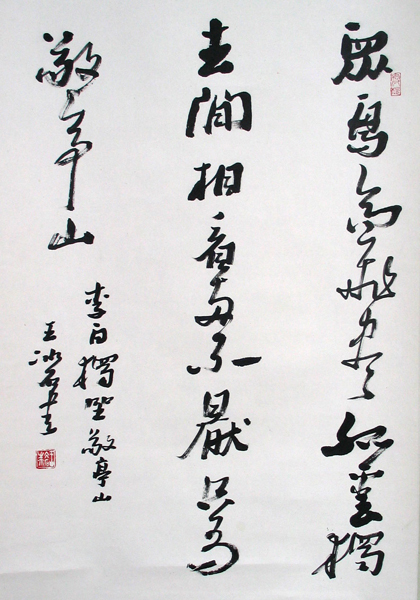 眾鳥高飛盡孤雲獨
去閒相看兩不厭只有
敬亭山
李白獨坐敬亭山
王冰石書